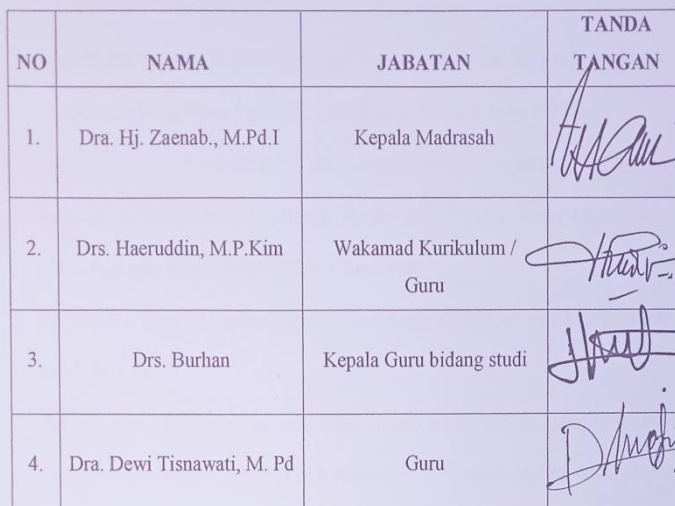 NO NAMA JABATAN TANDA TANGAN
1. Dra. Hj. Zaenab., M.Pd.I Kepala Madrasah
2. Drs. Haeruddin, M.P.Kim Wakamad Kurikulum /
Guru
3. Drs. Burhan Kepala Guru bidang studi
4. Dra. Dewi Tisnawati, M. Pd Guru